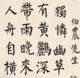 伯農先
獨憐幽草
有黃鸝深
帶雨晚來
人舟自橫